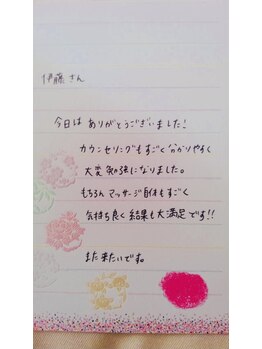 伊藤さん
今日は ありがとうございました!
カウンセリングもすごく分かりやすく
大変勉強になりました。
もちろんマッサージ自体もすごく
気持ち良く結果も大満足です!!
また来たいです。